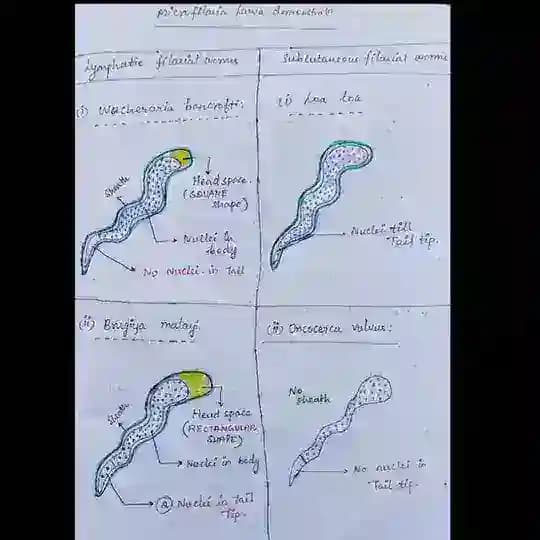 Microfilaria Larva demonstratn
Lymphatic filarial worms
Subcutaneous filarial worms
(i) Wuchereria bancrofti:
(i) Loa loa
Sheath
Head space.
(SQUARE
shape)
Nuclei in
body
No Nuclei in Tail
Nuclei till
Tail tip.
(ii) Brugiya malayi
(ii) Oncocerca valvus:
Sheath
Head space
(RECTANGULAR
SHAPE)
Nuclei in body
(2) Nuclei in Tail
Tip.
No
sheath
No nuclei in
Tail tip.